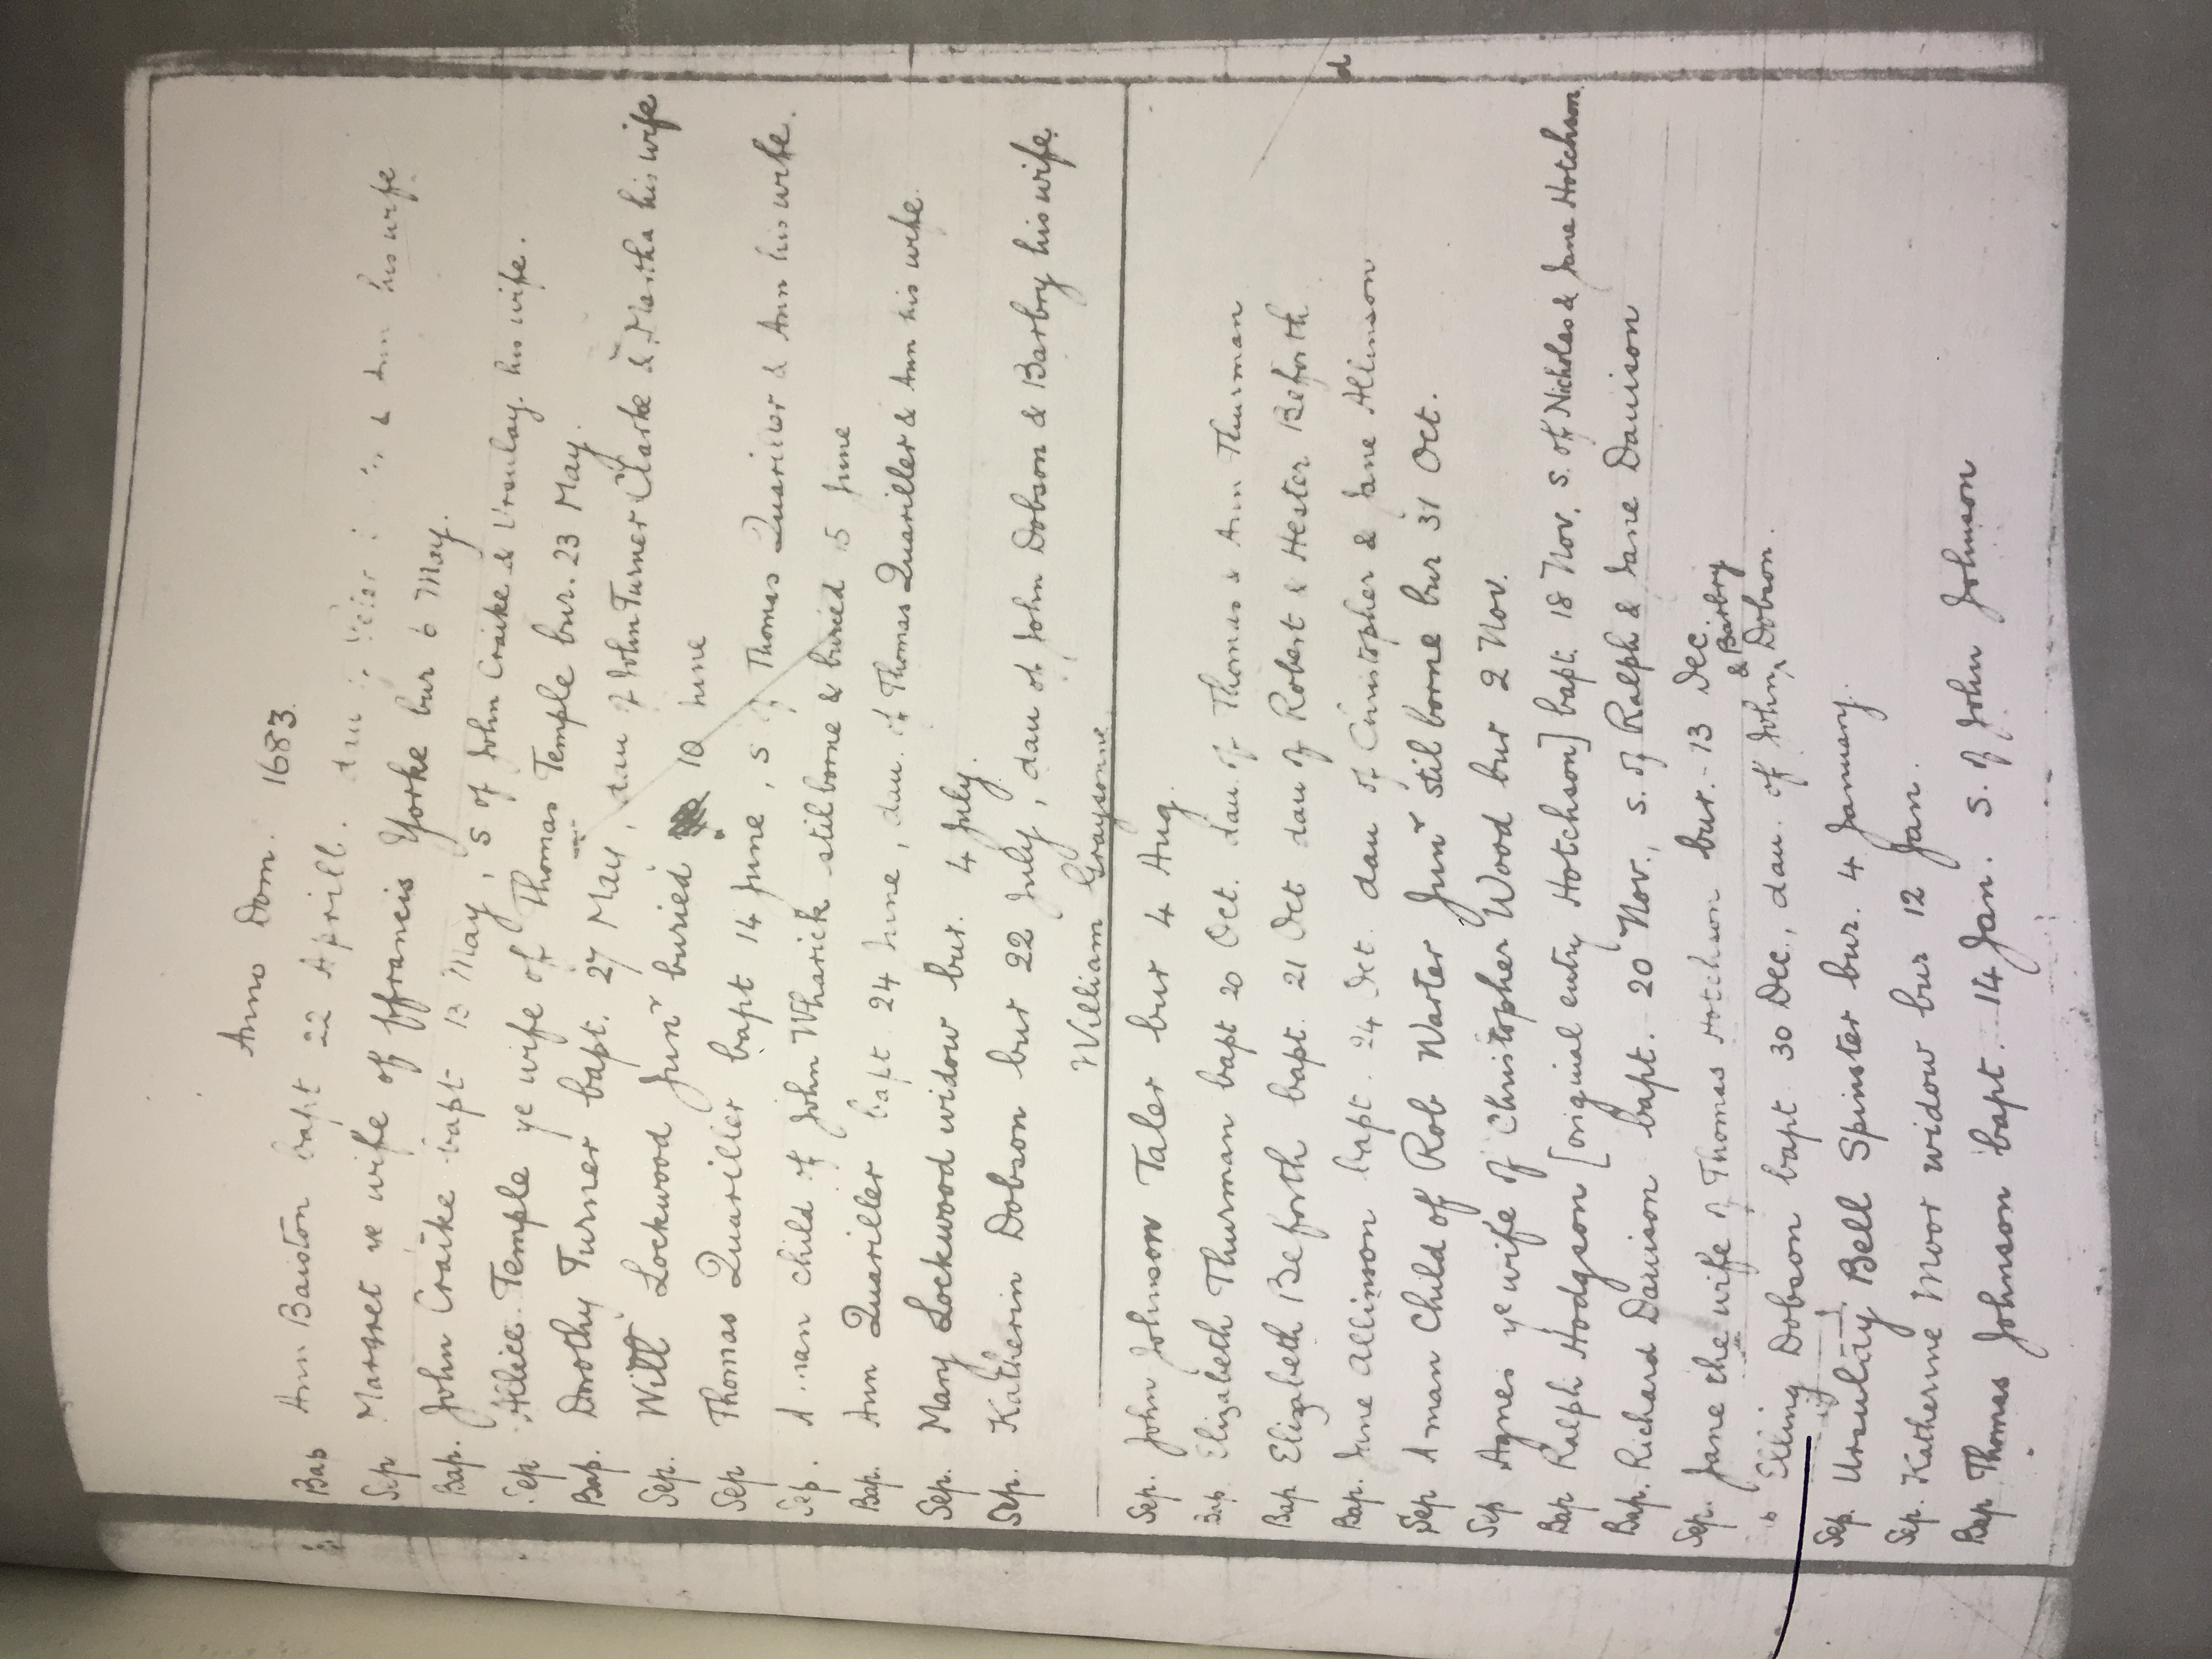 Anno Dom. 1683.
Bap Ann Baiston bapt 22 Aprill. dau & Ann his wife
Sep Margret ye wife of ffrancis Yorke bur 6 May.
Bap. John Craike bapt 13 May, s of John Craike & Ursulay his wife.
Sep Alice Temple ye wife of Thomas Temple bur. 23 May.
Bap. Dorothy Turner bapt. 27 May, dau of John Turner Clarke & Martha his wife
Sep. Will Lockwood Junr buried 10 June
Sep Thomas Quariller bapt 14 June, s of Thomas Quariller & Ann his wife.
Sep. A man child of John Wharick stilborne & buried 15 June
Bap. Ann Quariller bapt 24 June, dau. of Thomas Quariller & Ann his wife.
Sep. Mary Lockwood widow bur. 4 July.
Sep. Katherin Dobson bur 22 July, dau of John Dobson & Barbry his wife.
William Graysone
Sep. John Johnson Taler bur 4 Aug.
Bap Elizabeth Thurman bapt 20 Oct. dau. of Thomas & Ann Thurman
Bap Elizabeth Beforth bapt. 21 Oct dau of Robert & Hester Beforth
d
Bap. Jane Allinson bapt. 24 Oct. dau of Christopher & Jane Allinson
Sep A man Child of Rob Warter Junr stil borne bur 31 Oct.
Sep Agnes ye wife of Christopher Wood bur 2 Nov.
Bap Ralph Hodgson [original entry Hotchson] bapt. 18 Nov. s. of Nicholas & Jane Hotchson
Bap. Richard Davison bapt. 20 Nov., s. of Ralph & Jane Davison
Sep. Jane the wife of Thomas Hotchson bur. 13 Dec.
& Barbry
b Elling Dobson bapt 30 Dec., dau. of John, Dobson.
Sep. Ursulay Bell Spinster bur. 4 January.
Sep. Katherine Moor widow bur 12 Jan.
Bap Thomas Johnson bapt. 14 Jan. s. of John Johnson